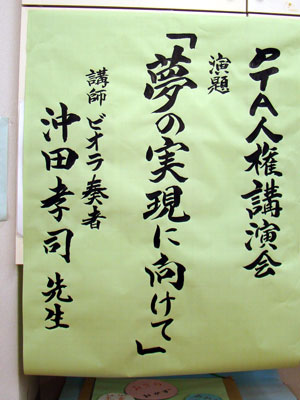 PTA人権講演会
演題
「夢の実現に向けて」
講師 ビオラ奏者
沖田孝司 先生